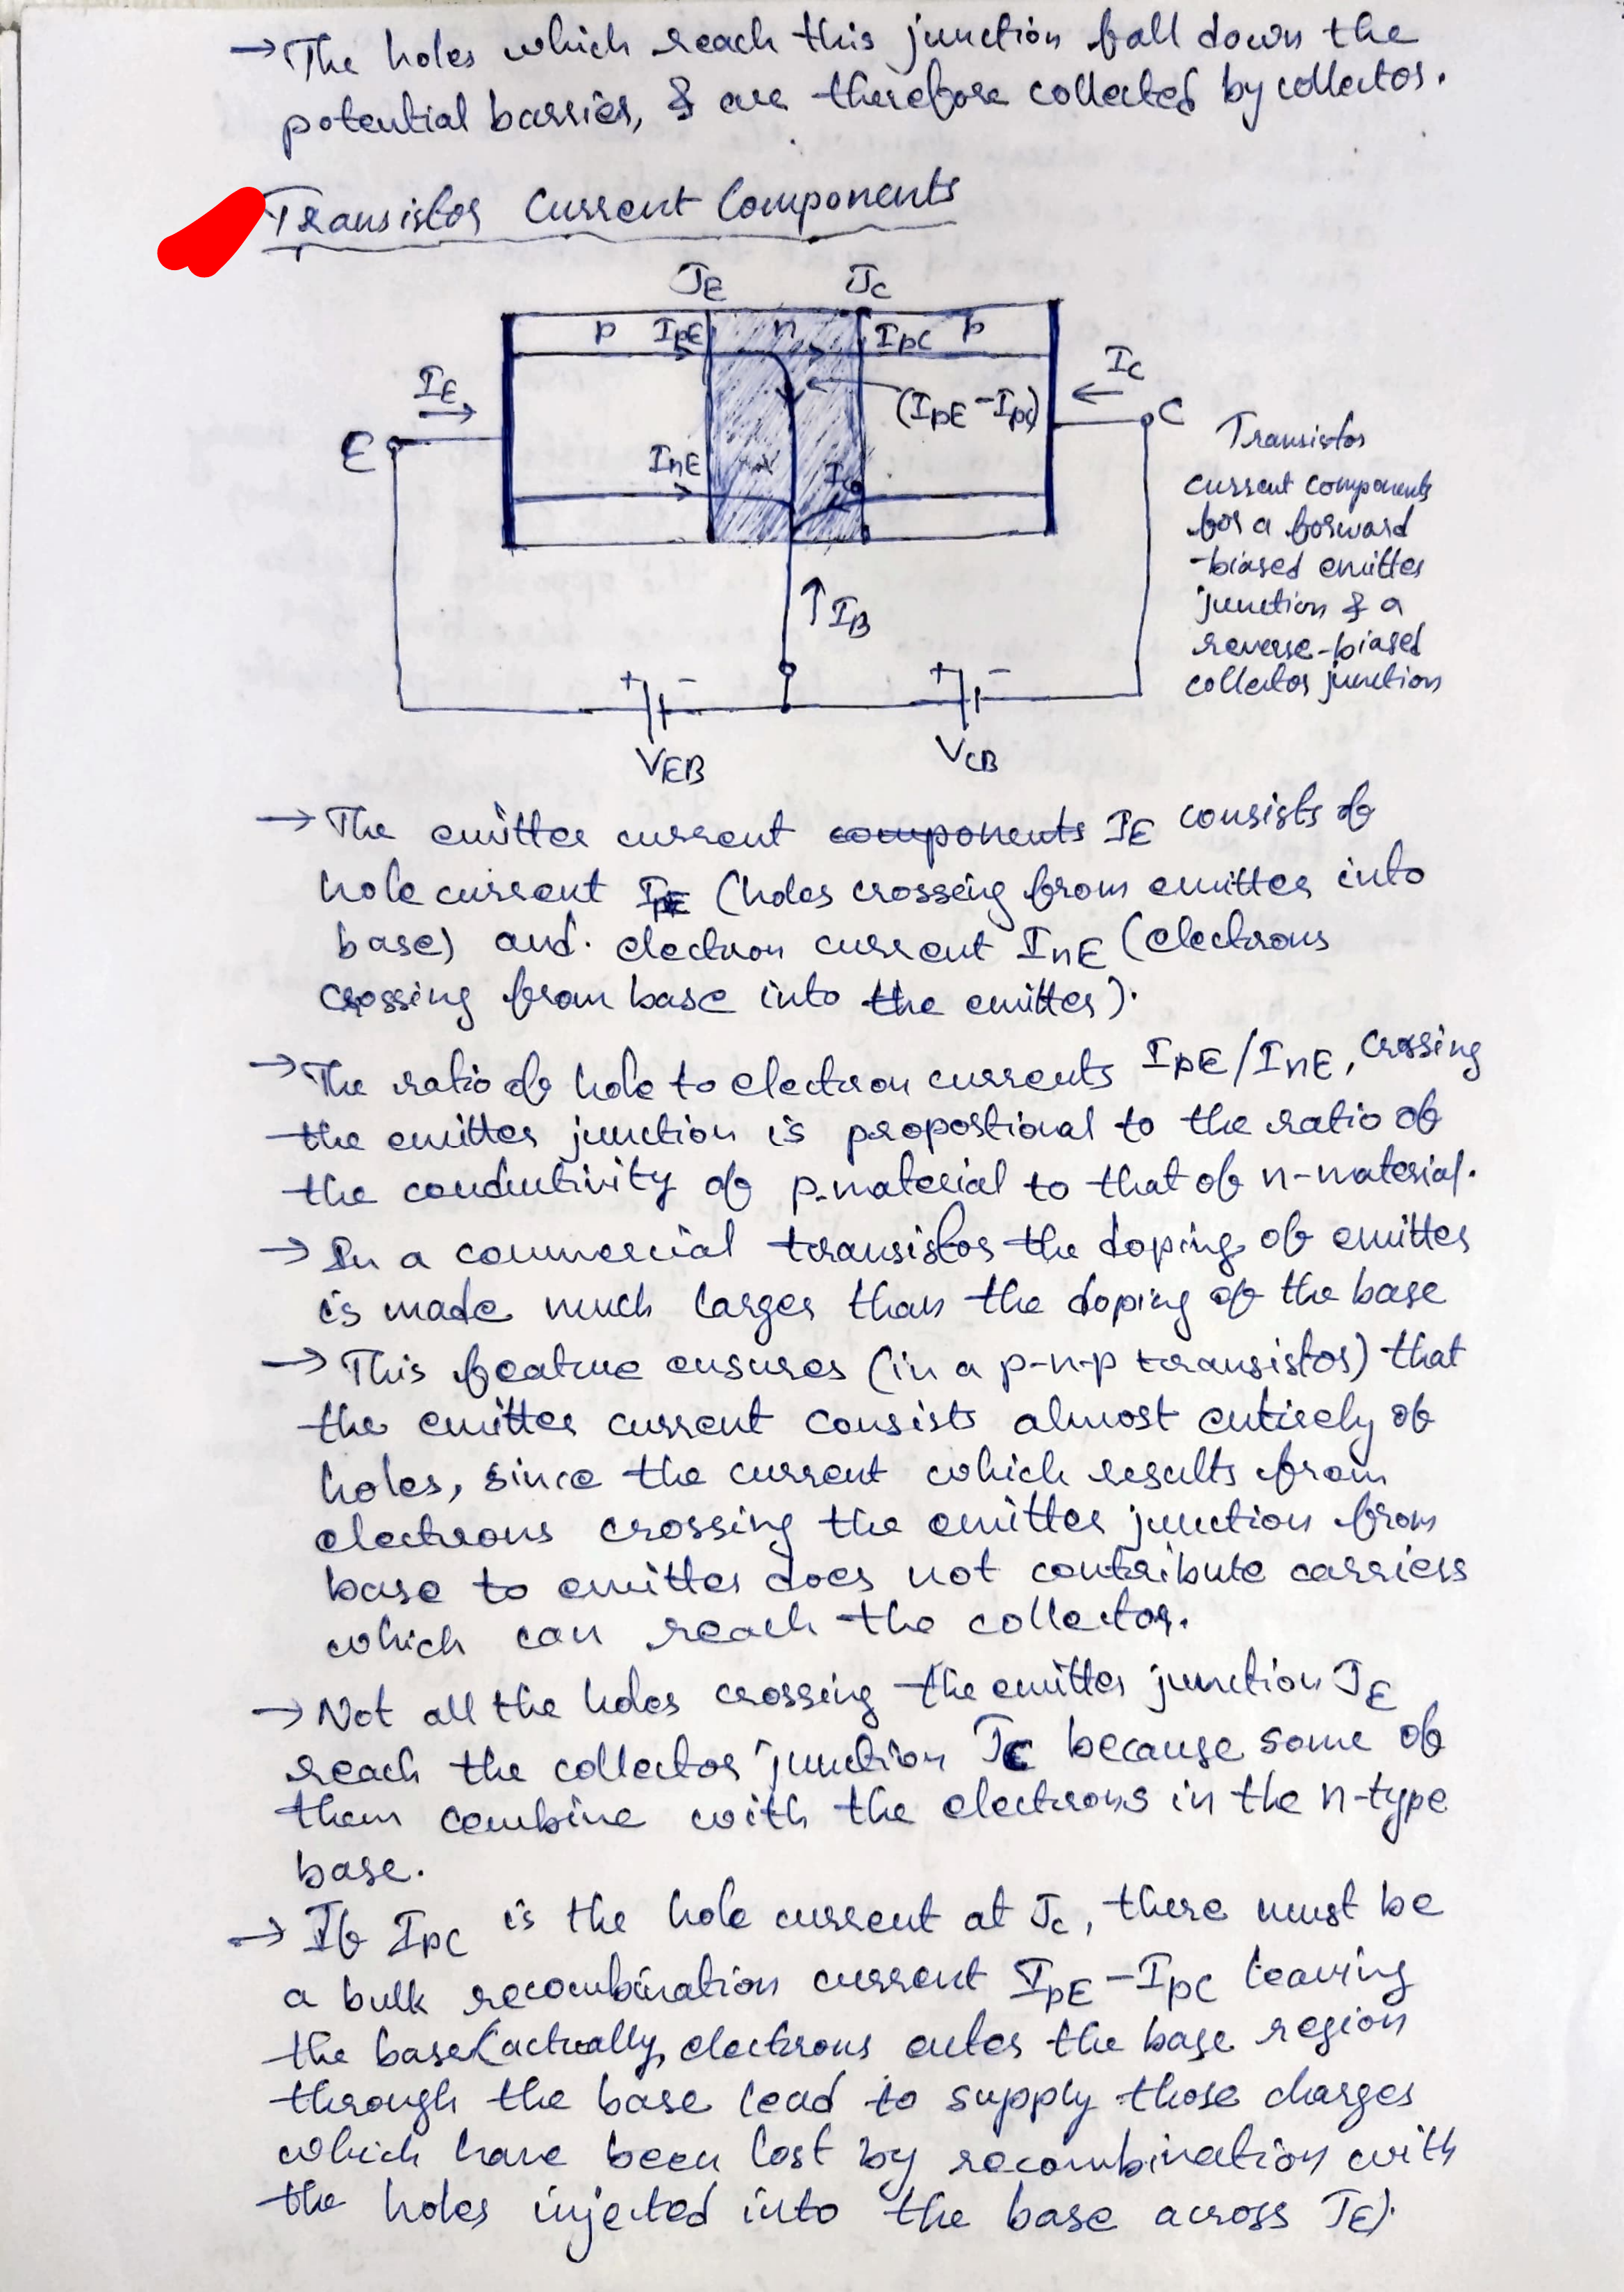 → The holes which reach this junction fall down the
potential barrier, & are therefore collected by collector.
Transistor Current Components
JE JC
p IpE n IpC p
IE IC
(IpE - IpC)
E C
InE Ico
IB
+ - + -
VEB VCB
Transistor
current components
for a forward
-biased emitter
junction & a
reverse-biased
collector junction
→ The emitter current components IE consists of
hole current IpE (holes crossing from emitter into
base) and electron current InE (electrons
crossing from base into the emitter).
→ The ratio of hole to electron currents IpE/InE, crossing
the emitter junction is proportional to the ratio of
the conductivity of p-material to that of n-material.
→ In a commercial transistor the doping of emitter
is made much larger than the doping of the base
→ This feature ensures (in a p-n-p transistor) that
the emitter current consists almost entirely of
holes, since the current which results from
electrons crossing the emitter junction from
base to emitter does not contribute carriers
which can reach the collector.
→ Not all the holes crossing the emitter junction JE
reach the collector junction JC because some of
them combine with the electrons in the n-type
base.
→ If IPC is the hole current at Jc, there must be
a bulk recombination current IpE - IpC leaving
the base (actually, electrons enter the base region
through the base lead to supply those charges
which have been lost by recombination with
the holes injected into the base across JE).